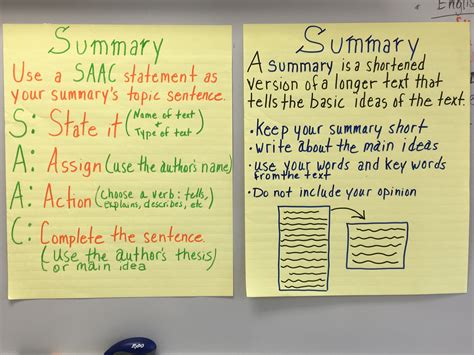 Summary
Use a SAAC statement as
your summary's topic sentence.
S: State it (Name of text
+
Type of text)
A: Assign (use the author's name)
A: Action (choose a verb: tells,
explains, describes, etc)
C: Complete the sentence.
(Use the author's thesis)
or main idea
Summary
A summary is a shortened
version of a longer text that
tells the basic ideas of the text.
• Keep your summary short
• write about the main ideas
• use your words and key words
from the text
• Do not include your opinion
Englis
expo